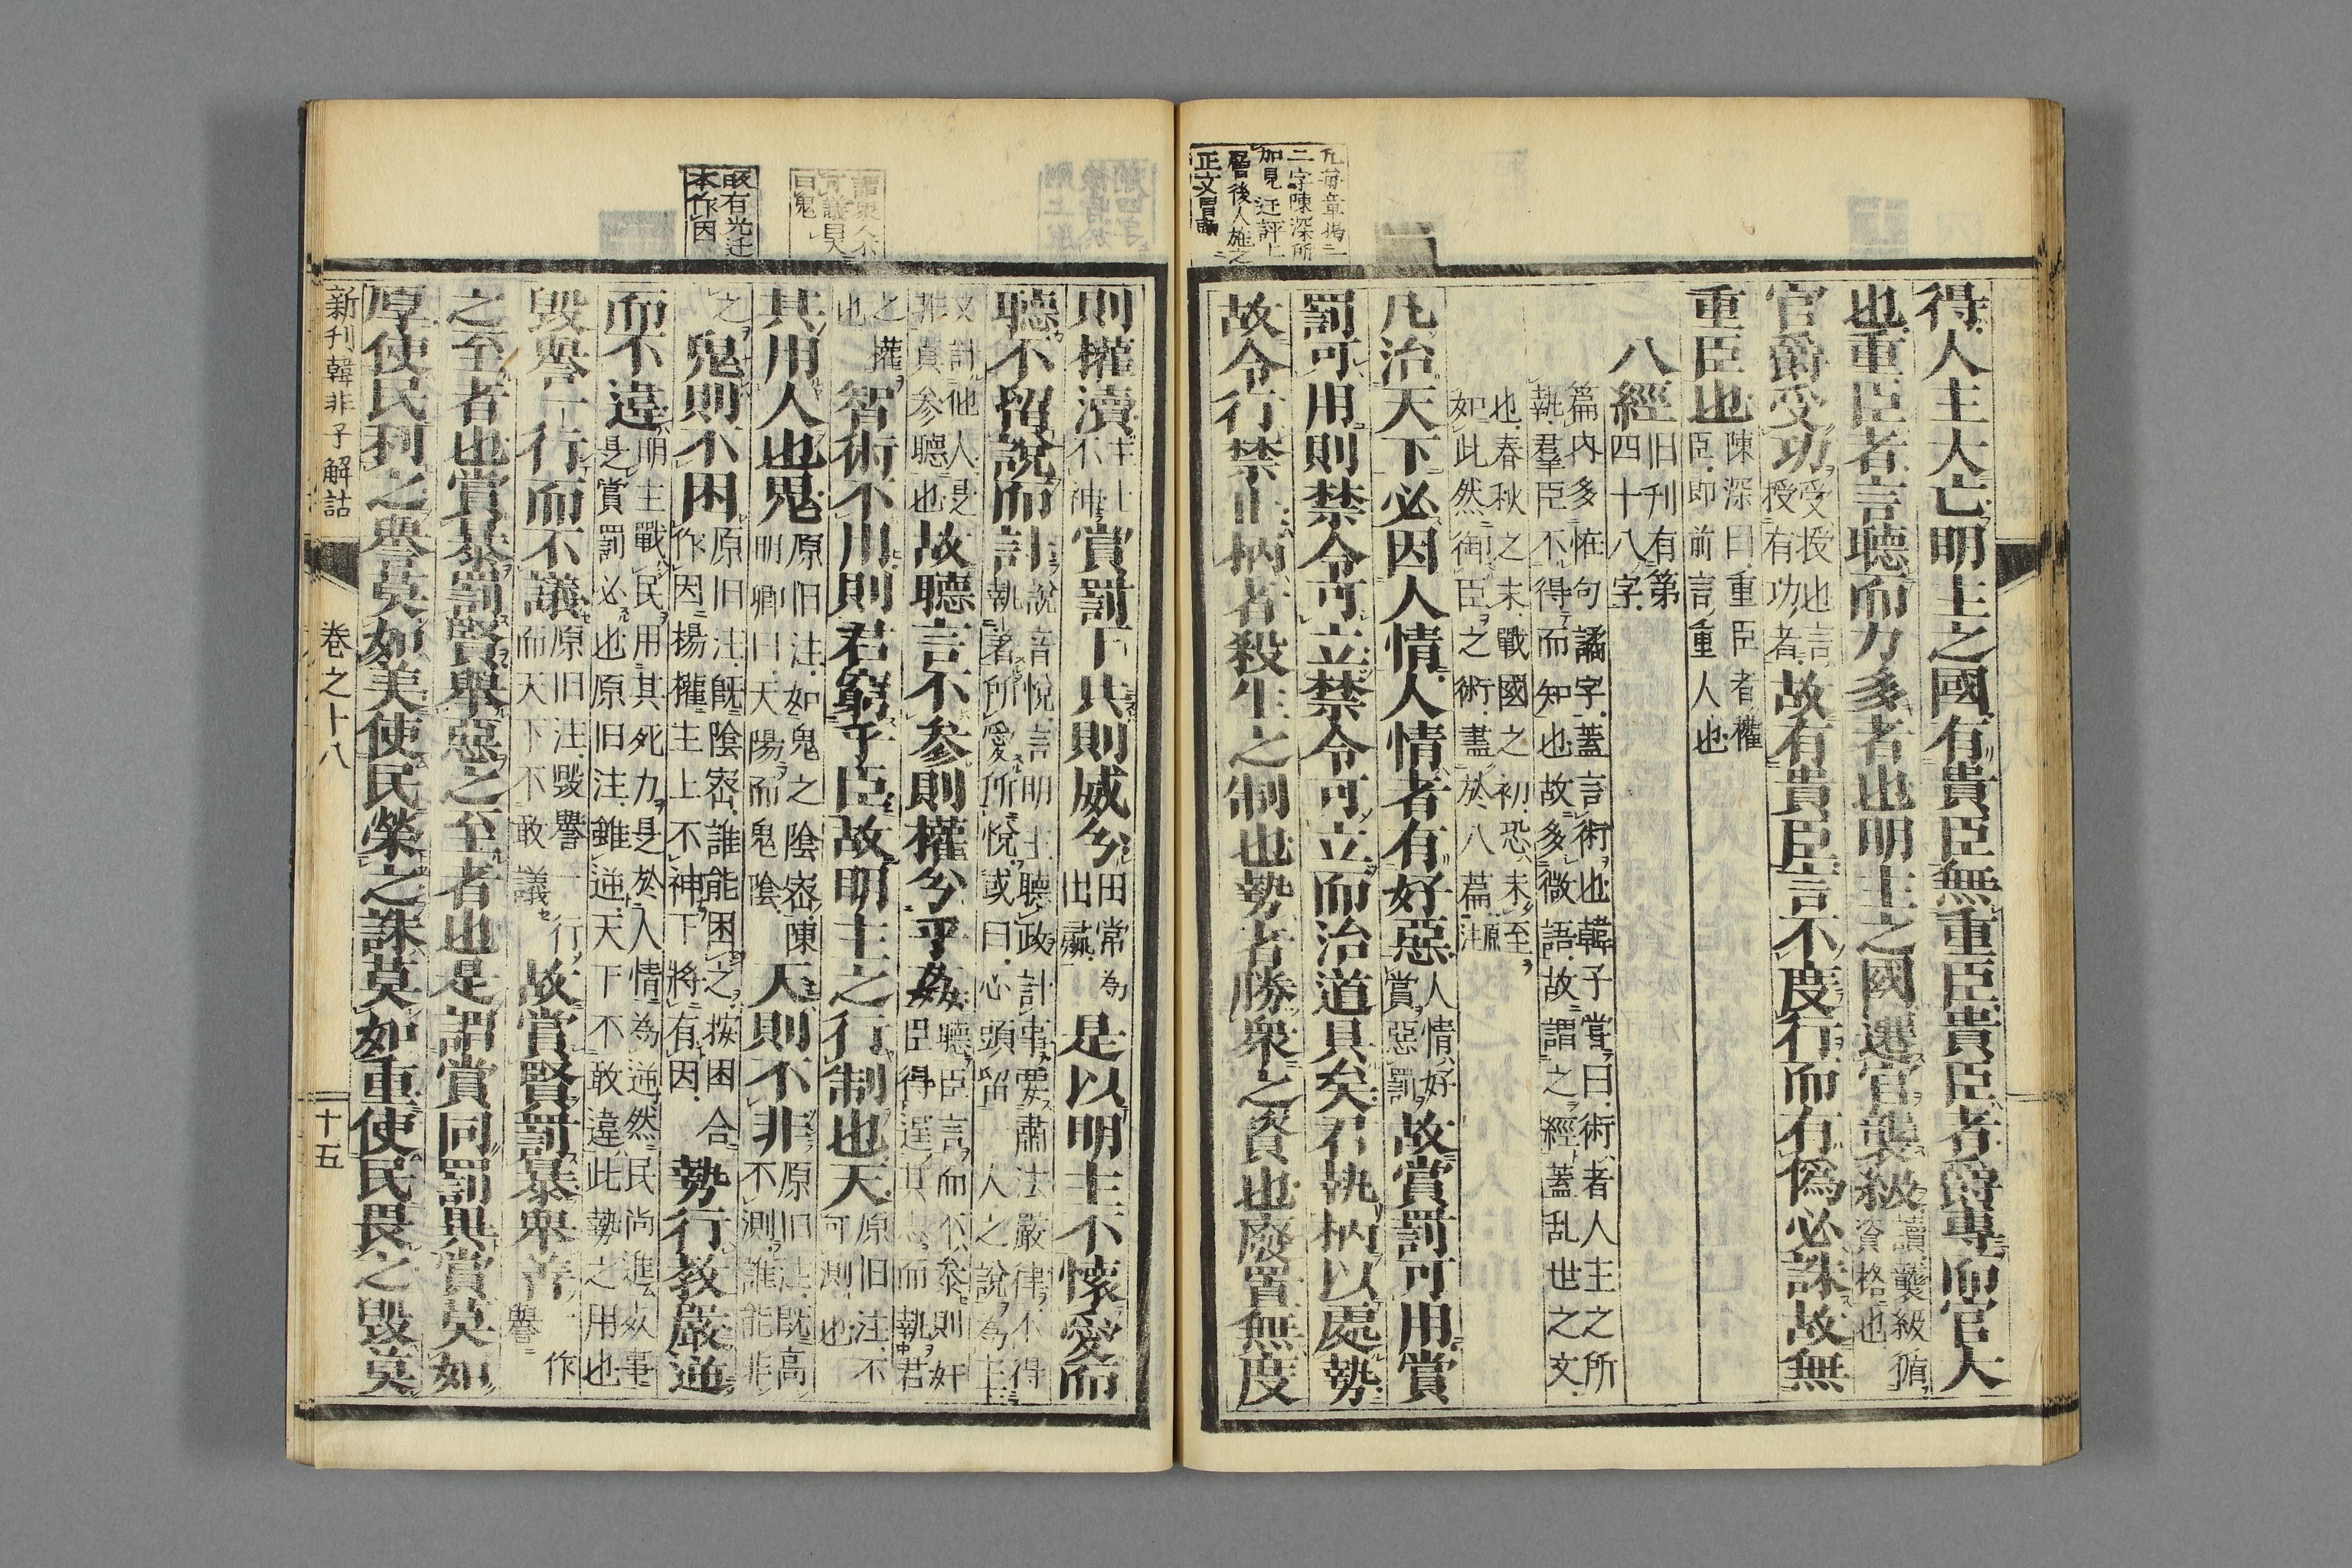 得人主大亡明主之國有貴臣無重臣貴臣者爵尊而官大
也重臣者言聽而力多者也明主之國遷官襲級
讀襲級循
資格也
官爵受功
受授也言
授有功者
故有貴臣言不度行而有偽必誅故無
重臣也
陳深曰重臣者權
臣即前言重人也
八經
旧刊有第
四十八字
篇內多怪句譎字蓋言術也韓子嘗曰術者人主之所
執羣臣不得而知也故多微語故謂之經蓋乱世之文
也春秋之末戰國之初恐未至
如此然御臣之術盡於八篇
原注
凡治天下必因人情人情者有好惡
人情好
賞惡罰
故賞罰可用賞
罰可用則禁令可立禁令可立而治道具矣君執柄以處勢
故令行禁止柄者殺生之制也勢者勝衆之資也廢置無度
二字陳深所
加見迂評上
層後人施之
正文冒頭
則權瀆
主上
不神
賞罰下共則威分
田常為
出羸
是以明主不懷愛而
聽不留說而計
說音悅言明主聽政計事要肅法嚴律不得
執著所愛所悅或曰心頭留一人之說為主
又計他人是
非眞參聽也
故聽言不參則權分乎姦
聽臣言而不參則奸
臣得逞其志而執君
之權
也
智術不用則君窮乎臣故明主之行制也天
原旧注不
可測也
其用人也鬼
原旧注如鬼之陰密陳
明卿曰天陽而鬼陰
天則不非
原旧注既高
不測誰能非
之
鬼則不困
原旧注既陰密誰能困之按困合
作因揚權主上不神下將有因
勢行教嚴逆
而不違
明主戰民用其死力是於人情為逆然民尚進㕝事
是賞罰必也原旧注雖逆天下不敢違此勢之用也
毀譽一行而不議
原旧注毀譽一行
而天下不敢議
故賞賢罰暴舉善
一作
譽
之至者也賞暴罰賢舉惡之至者也是謂賞同罰異賞莫如
厚使民利之譽莫如美使民榮之誅莫如重使民畏之毀莫
日鬼
敀有光迂
本作因
新刊韓非子解詁
卷之十八
十五